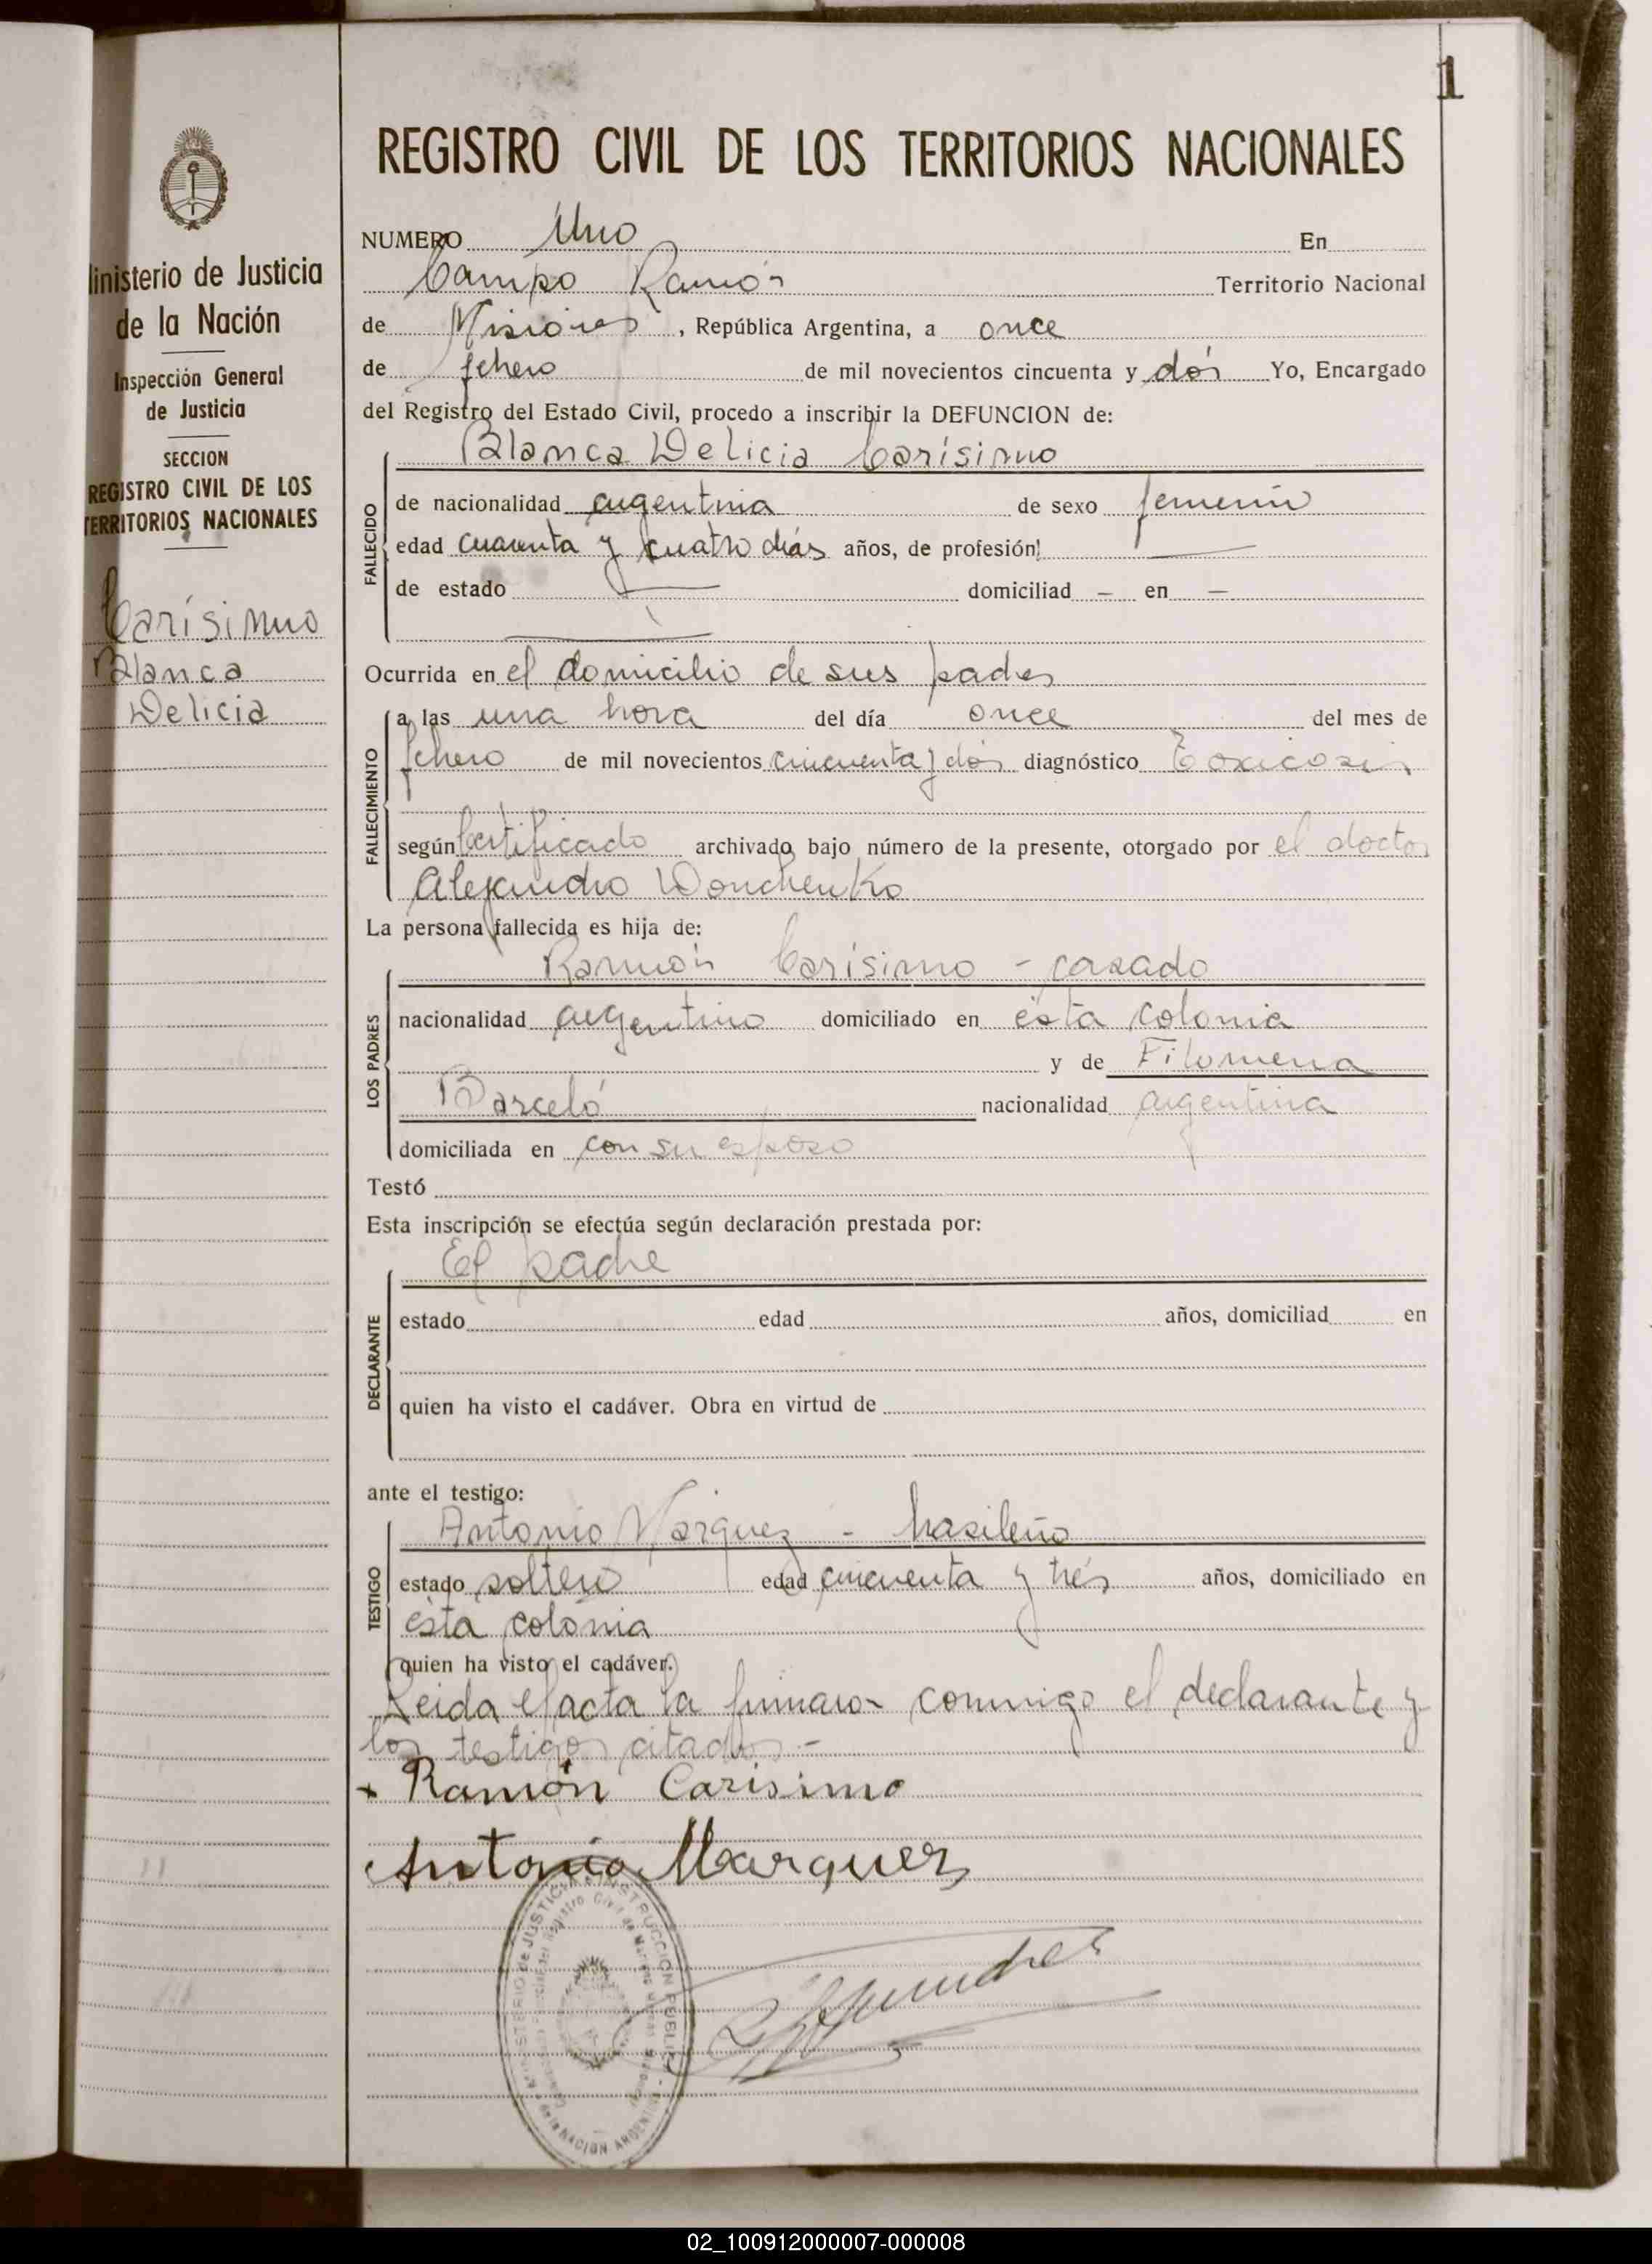 1
REGISTRO CIVIL DE LOS TERRITORIOS NACIONALES
inisterio de Justicia
de la Nación
Inspección General
de Justicia
SECCION
REGISTRO CIVIL DE LOS
TERRITORIOS NACIONALES
Carísimo
Blanca
Delicia
NUMERO Uno En
Campo Ramón Territorio Nacional
de Misiones, República Argentina, a once
de febrero de mil novecientos cincuenta y dós Yo, Encargado
del Registro del Estado Civil, procedo a inscribir la DEFUNCION de:
Blanca Delicia Carísimo
FALLECIDO
de nacionalidad argentina de sexo femenino
edad cuarenta y cuatro días años, de profesión —
de estado — domiciliad — en —
Ocurrida en el domicilio de sus padres
FALLECIMIENTO
a las una hora del día once del mes de
febrero de mil novecientos cincuenta y dós diagnóstico Toxicosis
según Certificado archivado bajo número de la presente, otorgado por el doctor
Alejandro Wonchenko
La persona fallecida es hija de:
LOS PADRES
Ramón Carísimo - casado
nacionalidad argentino domiciliado en ésta colonia
y de Filomena
Barceló nacionalidad argentina
domiciliada en con su esposo
Testó
Esta inscripción se efectúa según declaración prestada por:
El padre
DECLARANTE
estado edad años, domiciliad en
quien ha visto el cadáver. Obra en virtud de
ante el testigo:
TESTIGO
Antonio Márquez - brasileño
estado soltero edad cincuenta y trés años, domiciliado en
ésta colonia
quien ha visto el cadáver.
Leida el acta la firmaron conmigo el declarante y
los testigos citados.-
Ramón Carisimo
Antonio Marquez
MINISTERIO de JUSTICIA e INSTRUCCION PUBLICA
de la NACION ARGENTINA
02_100912000007-000008